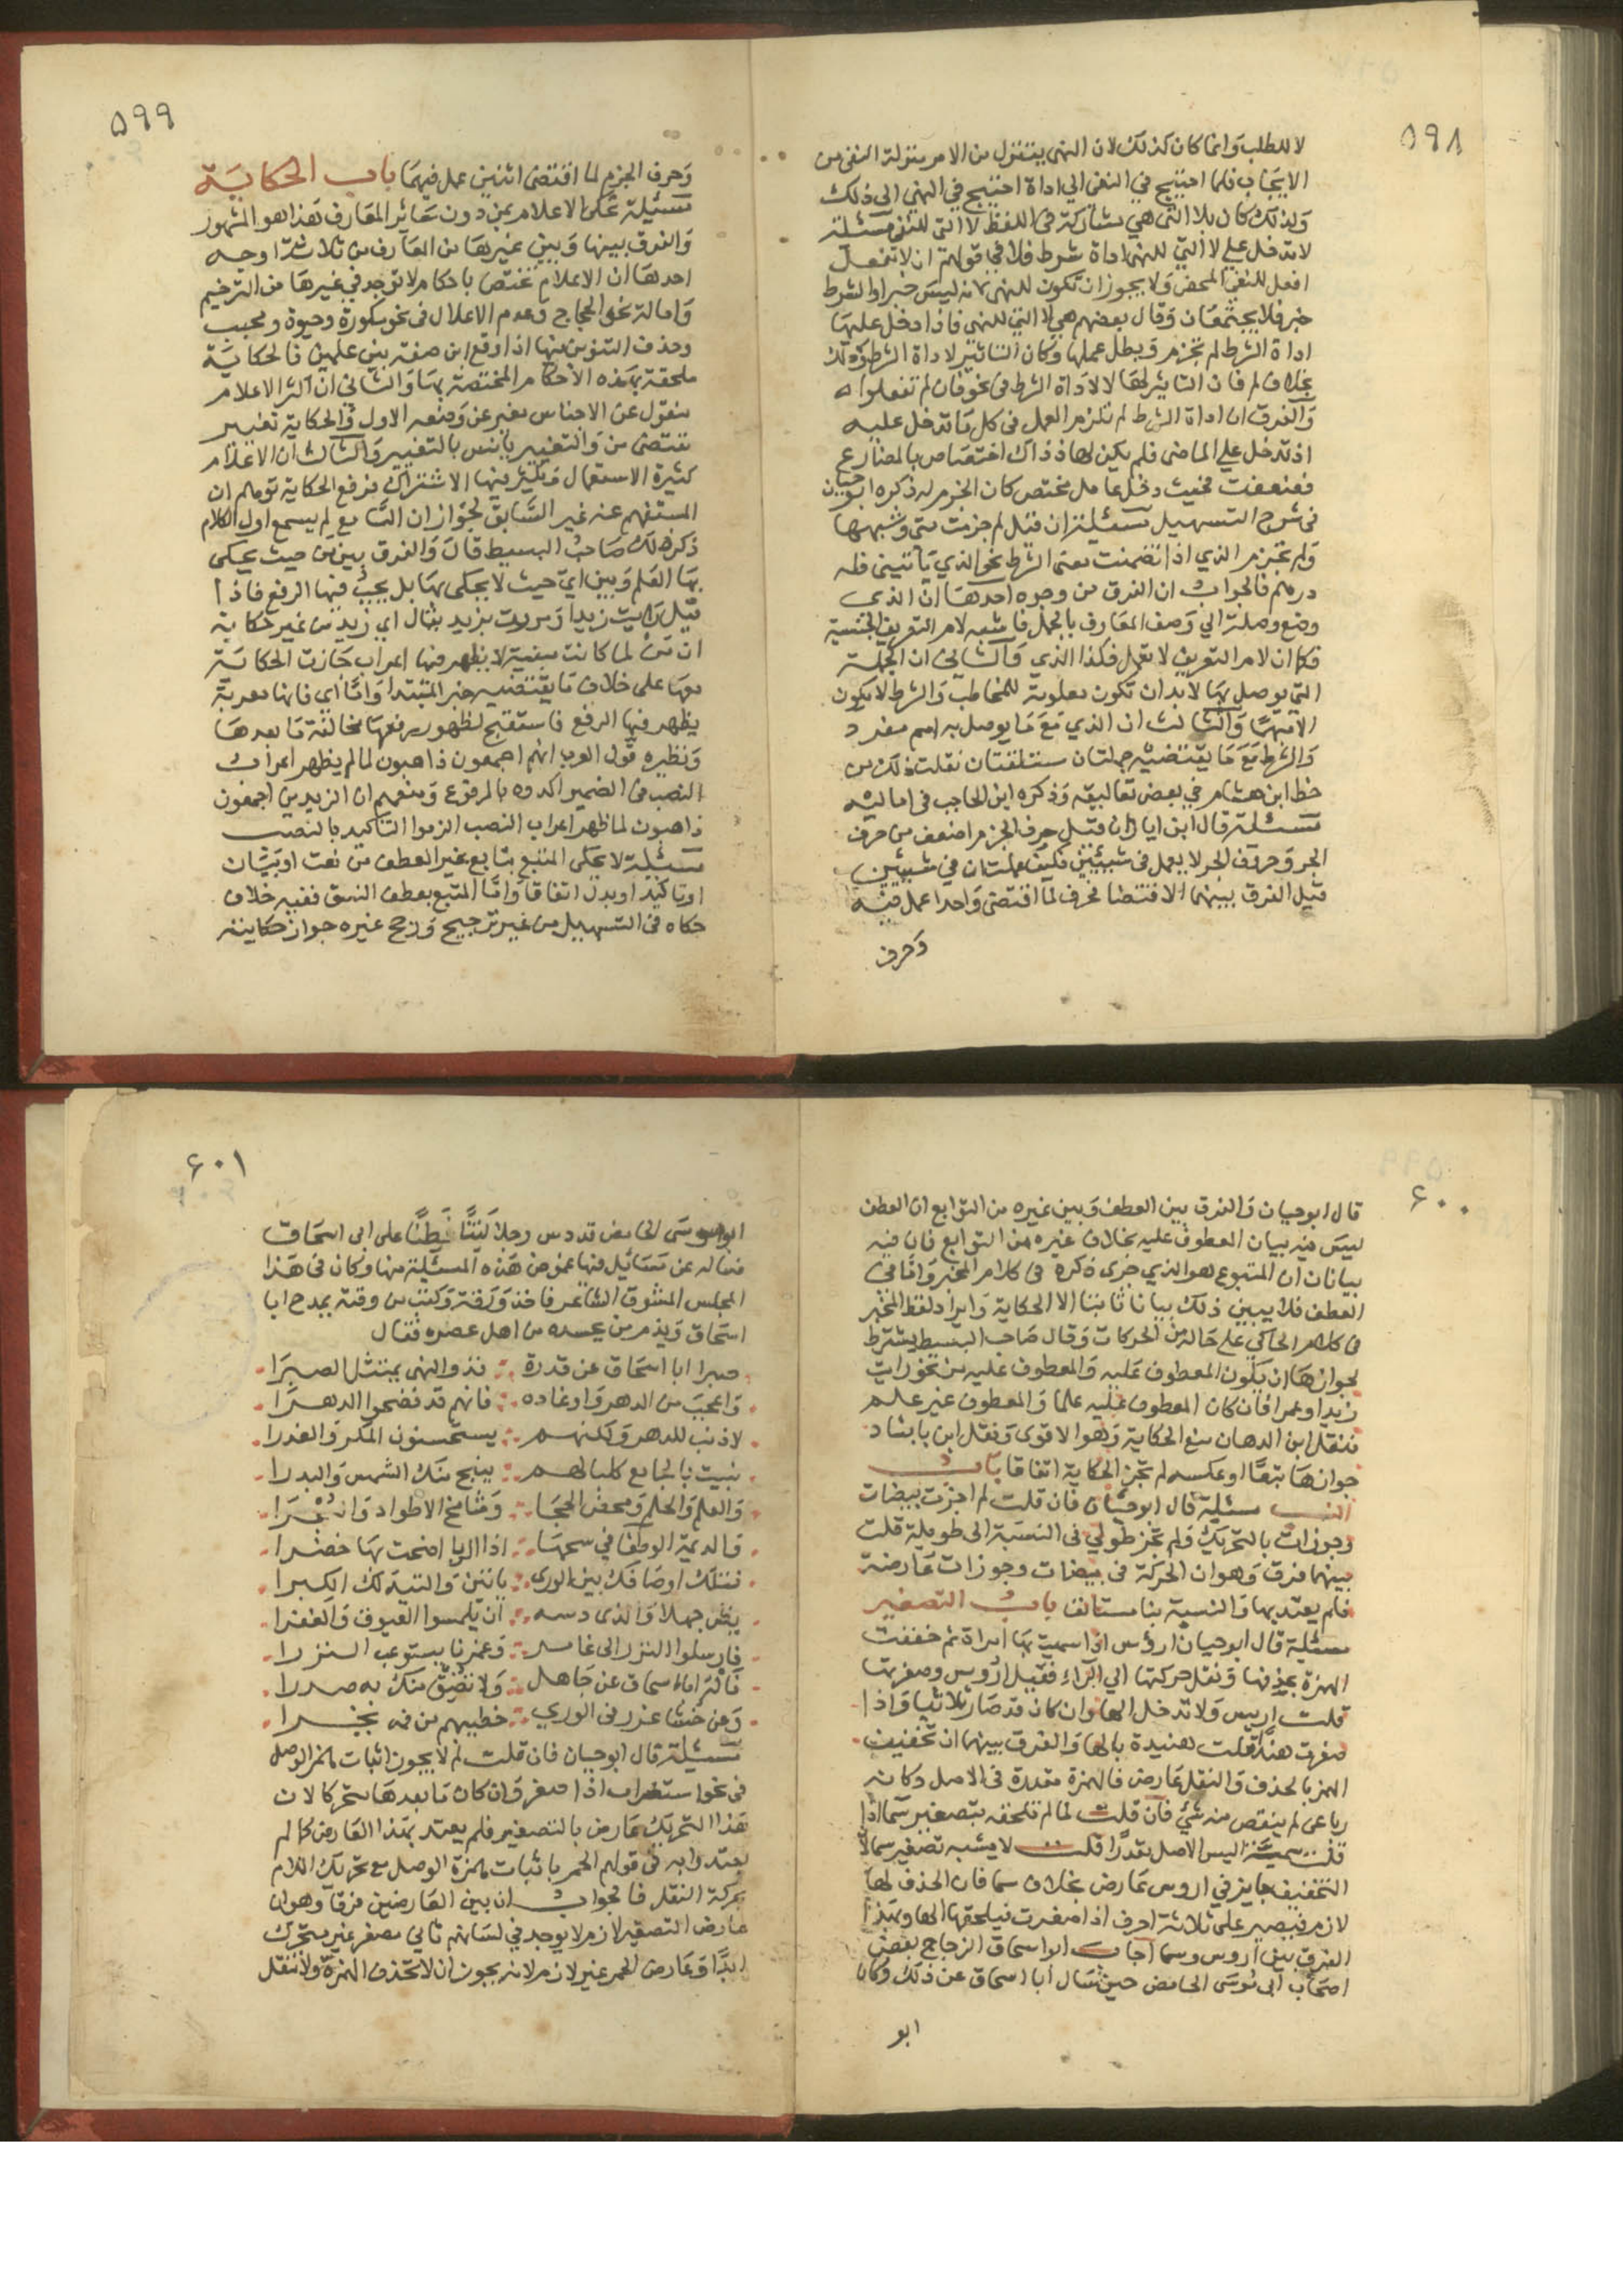 ٥٩٨
لا للطلب وانما كان كذلك لان النهى يتنزل من الامر منزلة النفى من
الايجاب فلما احتيج فى النفى الى اداة احتيج فى النهى الى ذلك
ولذلك كان بلا التى هى مشاركة فى اللفظ لا التى للنفى مسئلة
لا تدخل على لا التى للنهى اداة شرط فلا فى قولهم ان لا تفعل
افعل للنفى المحض ولا يجوز ان تكون للنهى لانه ليس خبرا والشرط
خبر فلا يجتمعان وقال بعضهم هى لا التى للنهى فاذا دخل عليها
اداة الشرط لم تجزم وبطل عملها وكان التاثير لاداة الشرط وذلك
بخلاف لم فان التاثير لها لا لاداة الشرط فى نحو فان لم تفعلوا
والفرق ان اداة الشرط لم تلزم العمل فى كل ما تدخل عليه
اذ تدخل على الماضى فلم يكن لها اذ ذاك اختصاص بالمضارع
فضعفت فحيث دخل عامل مختص كان الجزم له ذكره ابو حيان
فى شرح التسهيل مسئلة ان قيل لم جزمت متى وشبهها
ولم تجزم الذي اذا تضمنت معنى الشرط نحو الذي ياتينى فله
درهم فالجواب ان الفرق من وجوه احدها ان الذى
وضع وصلة الى وصف المعارف بالجمل فاشبه لام التعريف الجنسية
فكما ان لام التعريف لا تعمل فكذا الذي والثانى ان الجملة
التى يوصل بها لا بد ان تكون معلومة للمخاطب والشرط لا يكون
الا مبهما والثالث ان الذي مع ما يوصل به اسم مفرد
والشرط مع ما يقتضيه جملتان مستقلتان نقلت ذلك من
خط ابن هشام فى بعض تعاليقه وذكره ابن الحاجب فى اماليه
مسئلة قال ابن اياز ان قيل حرف الجزم اضعف من حرف
الجر وحرف الجر لا يعمل فى شيئين فكيف عملت ان فى شيئين
قيل الفرق بينهما الاقتضا فحرف لما اقتضى واحدا عمل فيه
وحرف
٥٩٩
وحرف الجزم لما اقتضى اثنين عمل فيهما باب الحكاية
مسئلة تحكى الاعلام بمن دون سائر المعارف هذا هو المشهور
والفرق بينها وبين غيرها من المعارف من ثلاثة اوجه
احدها ان الاعلام تختص باحكام لا توجد فى غيرها من الترخيم
وامالة نحو الحجاج وعدم الاعلال فى نحو مكوزة وحيوة ومحبب
وحذف التنوين منها اذا وقع ابن صفة بين علمين فالحكاية
ملحقة بهذه الاحكام المختصة بها والثانى ان اكثر الاعلام
منقول عن الاجناس مغير عن وضعه الاول والحكاية تغيير
تقتضى من والتغيير يانس بالتغيير والثالث ان الاعلام
كثيرة الاستعمال ويكثر فيها الاشتراك فرفع الحكاية توهم ان
المستفهم عنه غير السابق لجواز ان السامع لم يسمع اول الكلام
ذكر ذلك صاحب البسيط قال والفرق بين من حيث يحكى
بها العلم وبين اي حيث لا يحكى بها بل يجب فيها الرفع فاذا
قيل رايت زيدا ومررت بزيد يقال اي زيد من غير حكاية
ان من لما كانت مبنية لا يظهر فيها اعراب جازت الحكاية
معها على خلاف ما يقتضيه خبر المبتدا واما اي فانها معربة
يظهر فيها الرفع فاستقبح لظهور رفعها مخالفة ما بعدها
ونظيره قول العرب انهم اجمعون ذاهبون لما لم يظهر اعراب
النصب فى الضمير اكدوه بالمرفوع ومنعهم ان الزيدين اجمعون
ذاهبون لما ظهر اعراب النصب الزموا التاكيد بالنصب
مسئلة لا يحكى المتبع بتابع غير العطف من نعت او بيان
او تاكيد او بدل اتفاقا واما المتبع بعطف النسق ففيه خلاف
حكاه فى التسهيل من غير ترجيح ورجح غيره جواز حكايته
٦٠٠
قال ابو حيان والفرق بين العطف وبين غيره من التوابع ان العطف
ليس فيه بيان المعطوف عليه بخلاف غيره من التوابع فان فيه
بيانا ان المتبوع هو الذي جرى ذكره فى كلام المخبر واما فى
العطف فلا يبين ذلك بيانا ثابتا الا الحكاية وايراد لفظ المخبر
فى كلام الحاكى على حاله من الحركات وقال صاحب البسيط يشترط
لجوازها ان يكون المعطوف عليه والمعطوف علمين نحو رايت
زيدا وعمرا فان كان المعطوف عليه علما والمعطوف غير علم
فنقل ابن الدهان منع الحكاية وهو الاقوى ونقل ابن بابشاد
جوازها تبعا او عكسه لم تجز الحكاية اتفاقا باب
النسب مسئلة قال ابو حيان فان قلت لم اجزت بيضات
وجوزات بالتحريك ولم تجز طولي فى النسبة الى طويلة قلت
بينهما فرق وهو ان الحركة فى بيضات وجوزات عارضة
فلم يعتد بها والنسبة بنا مستانف باب التصغير
مسئلة قال ابو حيان ارؤس اذا سميت بها امراة ثم خففت
الهمزة بحذفها ونقل حركتها الى الراء فقيل اروس وصغرتها
قلت اريس ولا تدخل الها وان كان قد صار ثلاثيا واذا
صغرت هندا قلت هنيدة بالها والفرق بينهما ان تخفيف
الهمز بالحذف والنقل عارض فالهمزة مقدرة فى الاصل وكانه
رباعى لم ينقص منه شئ فان قلت لما لم تلحقه بتصغير سما اذا
قلت سمية اليس الاصل مقدرا قلت لا يشبه تصغير سما لان
التخفيف جايز فى اروس عارض بخلاف سما فان الحذف لها
لازم فيصير على ثلاثة احرف اذا صغرت فيلحقها الها وبهذا
الفرق بين اروس وسما اجاب ابو اسحاق الزجاج بعض
اصحاب ابى موسى الحامض حين سال ابا اسحاق عن ذلك وكان
ابو
٦٠١
ابو موسى الحامض قد دس رجلا لقنا فطنا على ابى اسحاق
فساله عن مسائل فيها غموض هذه المسئلة منها وكان فى هذا
المجلس المشوق الشاعر فاخذ ورقة وكتب من وقته يمدح ابا
اسحاق ويذم من يحسده من اهل عصره فقال
صبرا ابا اسحاق عن قدرة فذو النهى يمتثل الصبرا
واعجب من الدهر واوغاده فانهم قد فضحوا الدهرا
لا ذنب للدهر ولكنهم يستحسنون المكر والغدرا
نبيت بالجامع كلبا لهم ينبح منك الشمس والبدرا
والعلم والحلم ومحض الحجا وشامخ الاطواد والبحرا
والديمة الوطفا فى سحها اذا الربا اضحت بها خضرا
فتلك اوصافك بين الورى يابين والتيه لك الكبرا
يظن جهلا والذى دسه ان يلمسوا العيوق والغفرا
فارسلوا النزر الى غامر وغمرنا يستوعب النزرا
فاله ابا اسحاق عن جاهل ولا تضق منك به صدرا
وعن خشار غرر فى الورى خطيبهم من فمه يخرا
مسئلة قال ابو حيان فان قلت لم لا يجوز اثبات همز الوصل
فى نحو استضراب اذا صغر وان كان ما بعدها متحركا لان
هذا التحريك عارض بالتصغير فلم يعتد بهذا العارض كما لم
يعتدوا به فى قولهم الحمر باثبات همزة الوصل مع تحريك اللام
بحركة النقل فالجواب ان بين العارضين فرقا وهو ان
عارض التصغير لازم لا يوجد فى لسانهم ثانى مصغر غير متحرك
ابدا وعارض الحمر غير لازم لانه يجوز ان لا تحذف الهمزة ولا تنقل